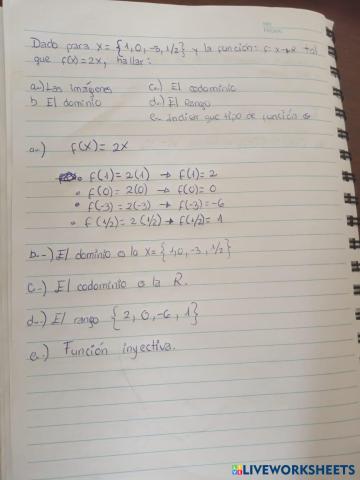 Dado para x = {1, 0, -3, 1/2} y la función: f: x→R tal
que f(x) = 2x, hallar:
a.-) Las imágenes c.-) El codominio
b El dominio d.-) El Rango
e.- Indicar que tipo de función es
a.-) f(x) = 2x
• f(1) = 2(1) → f(1) = 2
• f(0) = 2(0) → f(0) = 0
• f(-3) = 2(-3) → f(-3) = -6
• f(1/2) = 2(1/2) → f(1/2) = 1
b.-) El dominio o la x = {1, 0, -3, 1/2}
c.-) El codominio o la R.
d.-) El rango {2, 0, -6, 1}
e.) Función inyectiva.
LIVEWORKSHEETS